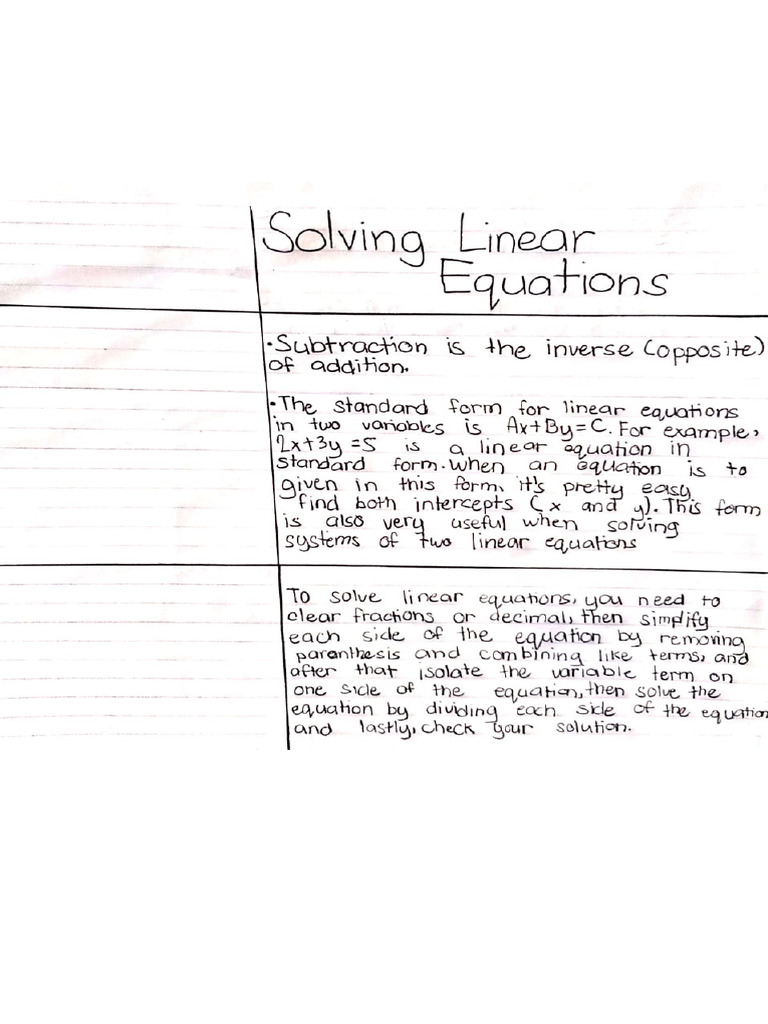 Solving Linear
Equations
•Subtraction is the inverse (opposite)
of addition.
•The standard form for linear equations
in two variables is Ax+By=C. For example,
2x+3y=5 is a linear equation in
standard form. When an equation is to
given in this form, it's pretty easy
find both intercepts (x and y). This form
is also very useful when solving
systems of two linear equations
To solve linear equations, you need to
clear fractions or decimal, then simplify
each side of the equation by removing
paranthesis and combining like terms, and
after that isolate the variable term on
one side of the equation, then solve the
equation by dividing each side of the equation
and lastly, check your solution.